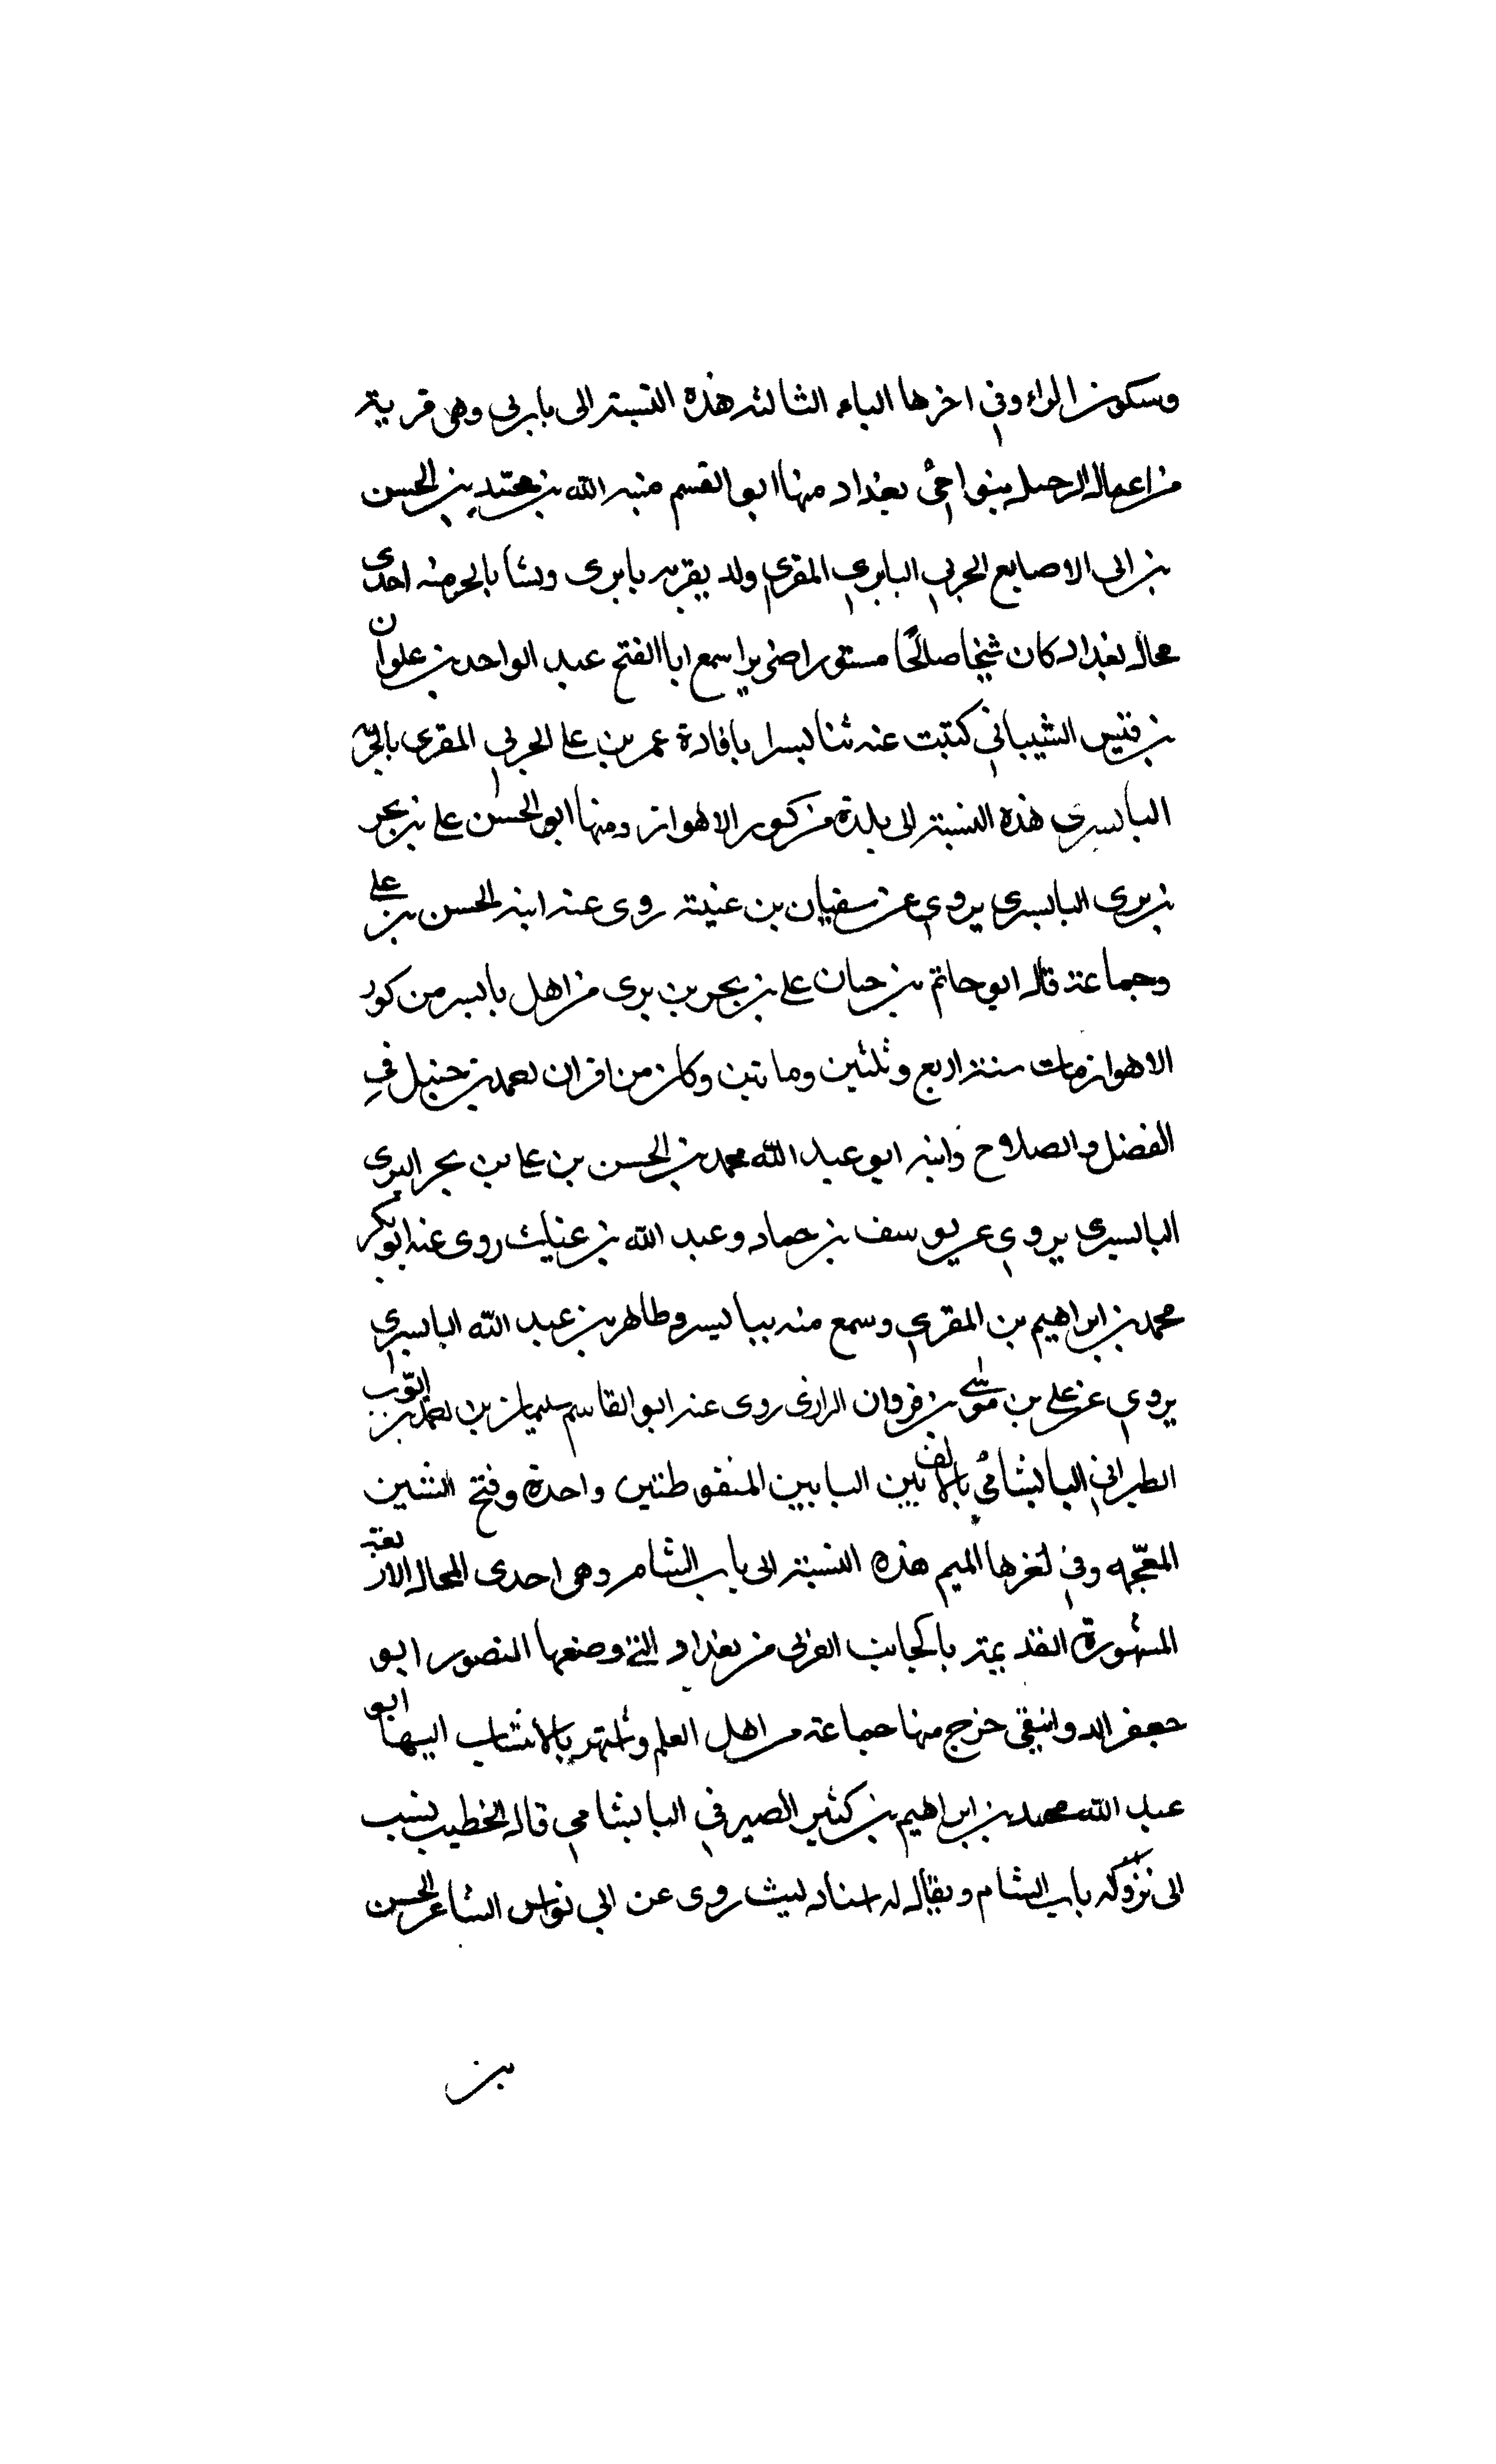 وسكون الراء وفي اخرها الباء الثالثه هذه النسبة الى بابرى وهى قرية
من اعمال الدجيل بنواحى بغداد منها ابو القسم هبة الله بن محمد بن الحسن
بن ابى الاصابع الحربى البابرى المقرى ولد بقرية بابرى ونشا بالحربيه احدى
محال بغداد كان شيخا صالحا مستورا ضريرا سمع ابا الفتح عبد الواحد بن علوان
بن قنيس الشيبانى كتبت عنه شيا يسيرا بافادة عمر بن على الحربى المقرى بالحربيه
البابسرى هذه النسبة الى بلدة من كور الاهواز ومنها ابو الحسن على بن بحر
بن برى البابسرى يروى عن سفيان بن عيينة روى عنه ابنه الحسن بن على
وجماعة قال ابو حاتم بن حبان على بن بحر بن برى من اهل بابسر من كور
الاهواز مات سنة اربع وثلثين وماتين وكان من اقران احمد بن حنبل في
الفضل والصلاح وابنه ابو عبد الله محمد بن الحسن بن على بن بحر البرى
البابسرى يروى عن يوسف بن حماد وعبد الله بن روى عنه ابو بكر
محمد بن ابراهيم بن المقرى وسمع منه ببابسر وطاهر بن عبد الله البابسرى
يروى عن على بن موسى بن الرازى روى عنه ابو القاسم سليمان بن احمد بن ايوب
الطبرانى البابشامى بالالف بين البابين المنقوطتين واحدة وفتح الشين
المعجمه وفي اخرها الميم هذه النسبة الى باب الشام وهى احدى المحال الاربعة
المشهورة القديمة بالجانب الغربى من بغداد التى وضعها المنصور ابو
جعفر الدوانيقى خرج منها جماعة من اهل العلم واشتهر بالانتساب اليها ابو
عبد الله محمد بن ابراهيم بن كثير الصيرفى البابشامى قال الخطيب ينسب
الى نزوله باب الشام ويقال له استاد ليث روى عن ابى نواس الشاعر الحسن
بن